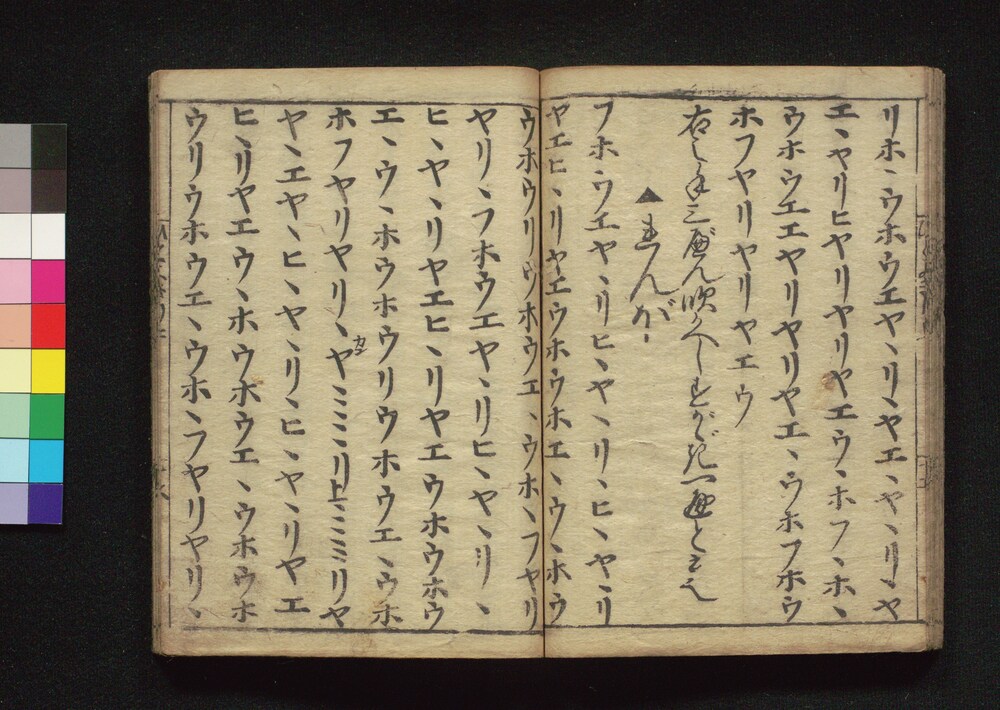 リホヽウホウエヤヽリヤエヽヤヽリヽヤ
エヽヤリヒヤリヤリヤエウヽホフヽホヽ
ウホウエエヤリヤリヤエヽウホフホウ
ホフヤリヤリヤエウ
▲れんが
フホウエヤヽリヒヽヤヽリヽヒヽヤリ
ヤエヒヽリヤエウホウホエヽウヽホウ
ウホウリウホウエヽウホヽフヤリ
ヤリヽフホウエヤヽリヒヽヤヽリヽ
ヒヽヤヽリヤエヒヽリヤエウホウホウ
エヽウヽホウホウリウホウエヽウホ
ホフヤリヤリヽヤミミミリ上ミミミリヤ
ヤヽエヤヽヒヽヤヽリヽヒヽヤヽリヤエ
ヒヽリヤエウヽホウホウエヽウホウホ
ウリウホウエヽウホヽフヤリヤリヽ